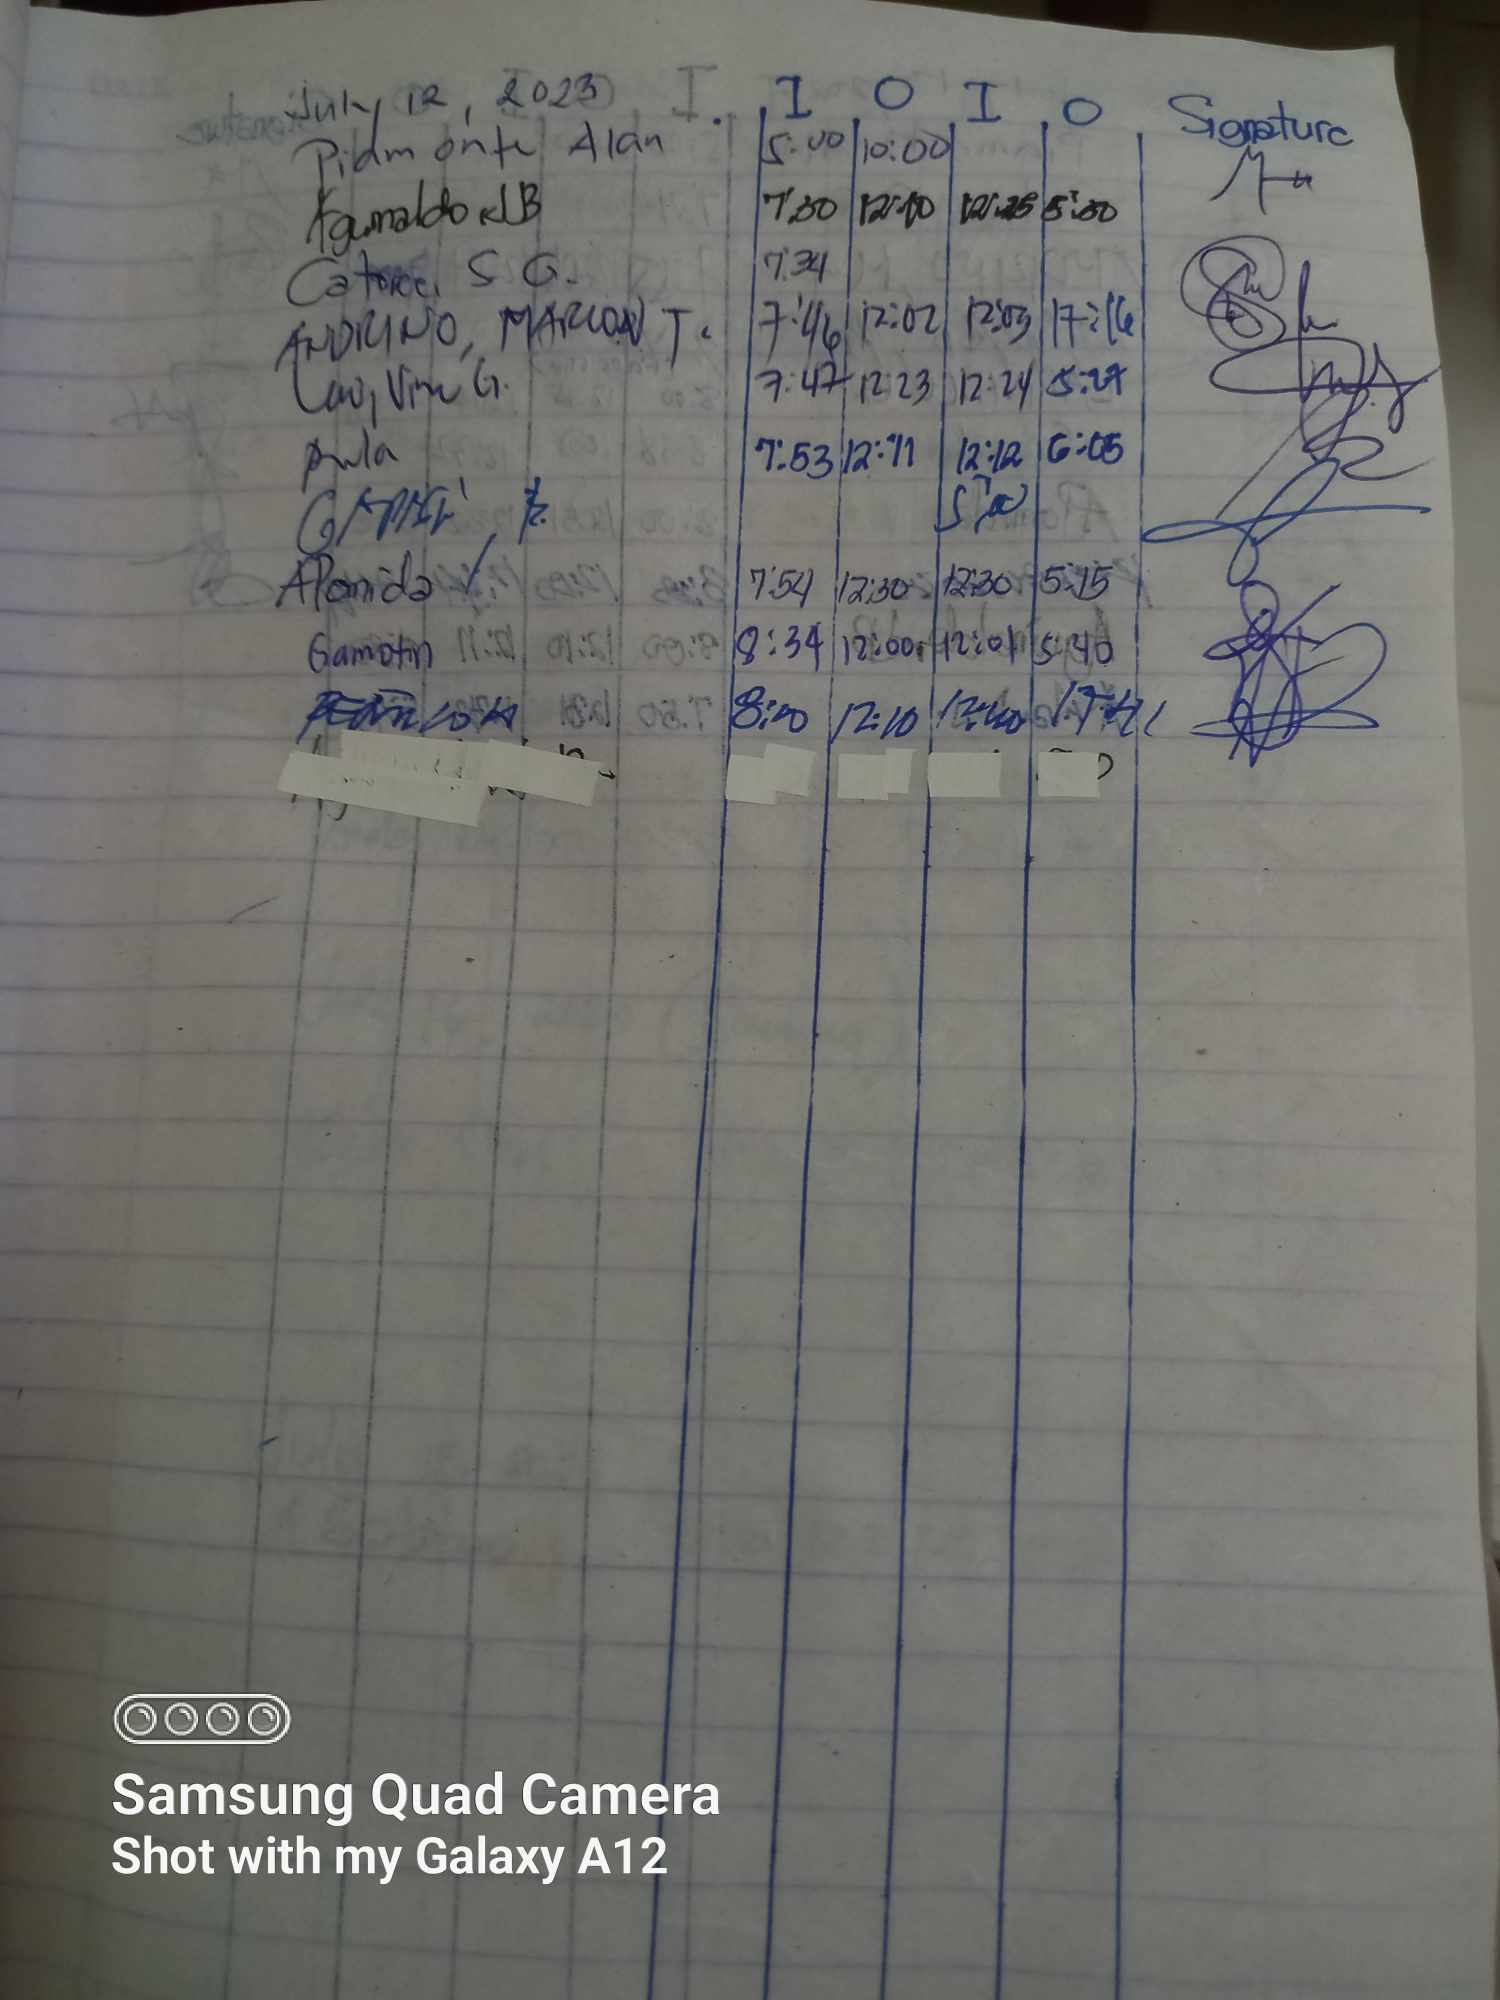 July 12, 2023 I O I O Signature
Piamonte Alan 5:00 10:00
Aguinaldo JB 7:30 12:10 12:25 5:30
S G. 7:34
ANDRINO, MARLON T. 7:46 12:02 12:03 17:16
G. 7:47 12:23 12:24 5:27
7:53 12:11 12:12 6:05
Alomida 7:54 12:30 12:30 5:15
Gamotin 8:34 12:00 12:01 5:40
8:00 12:10 12:40
Samsung Quad Camera
Shot with my Galaxy A12